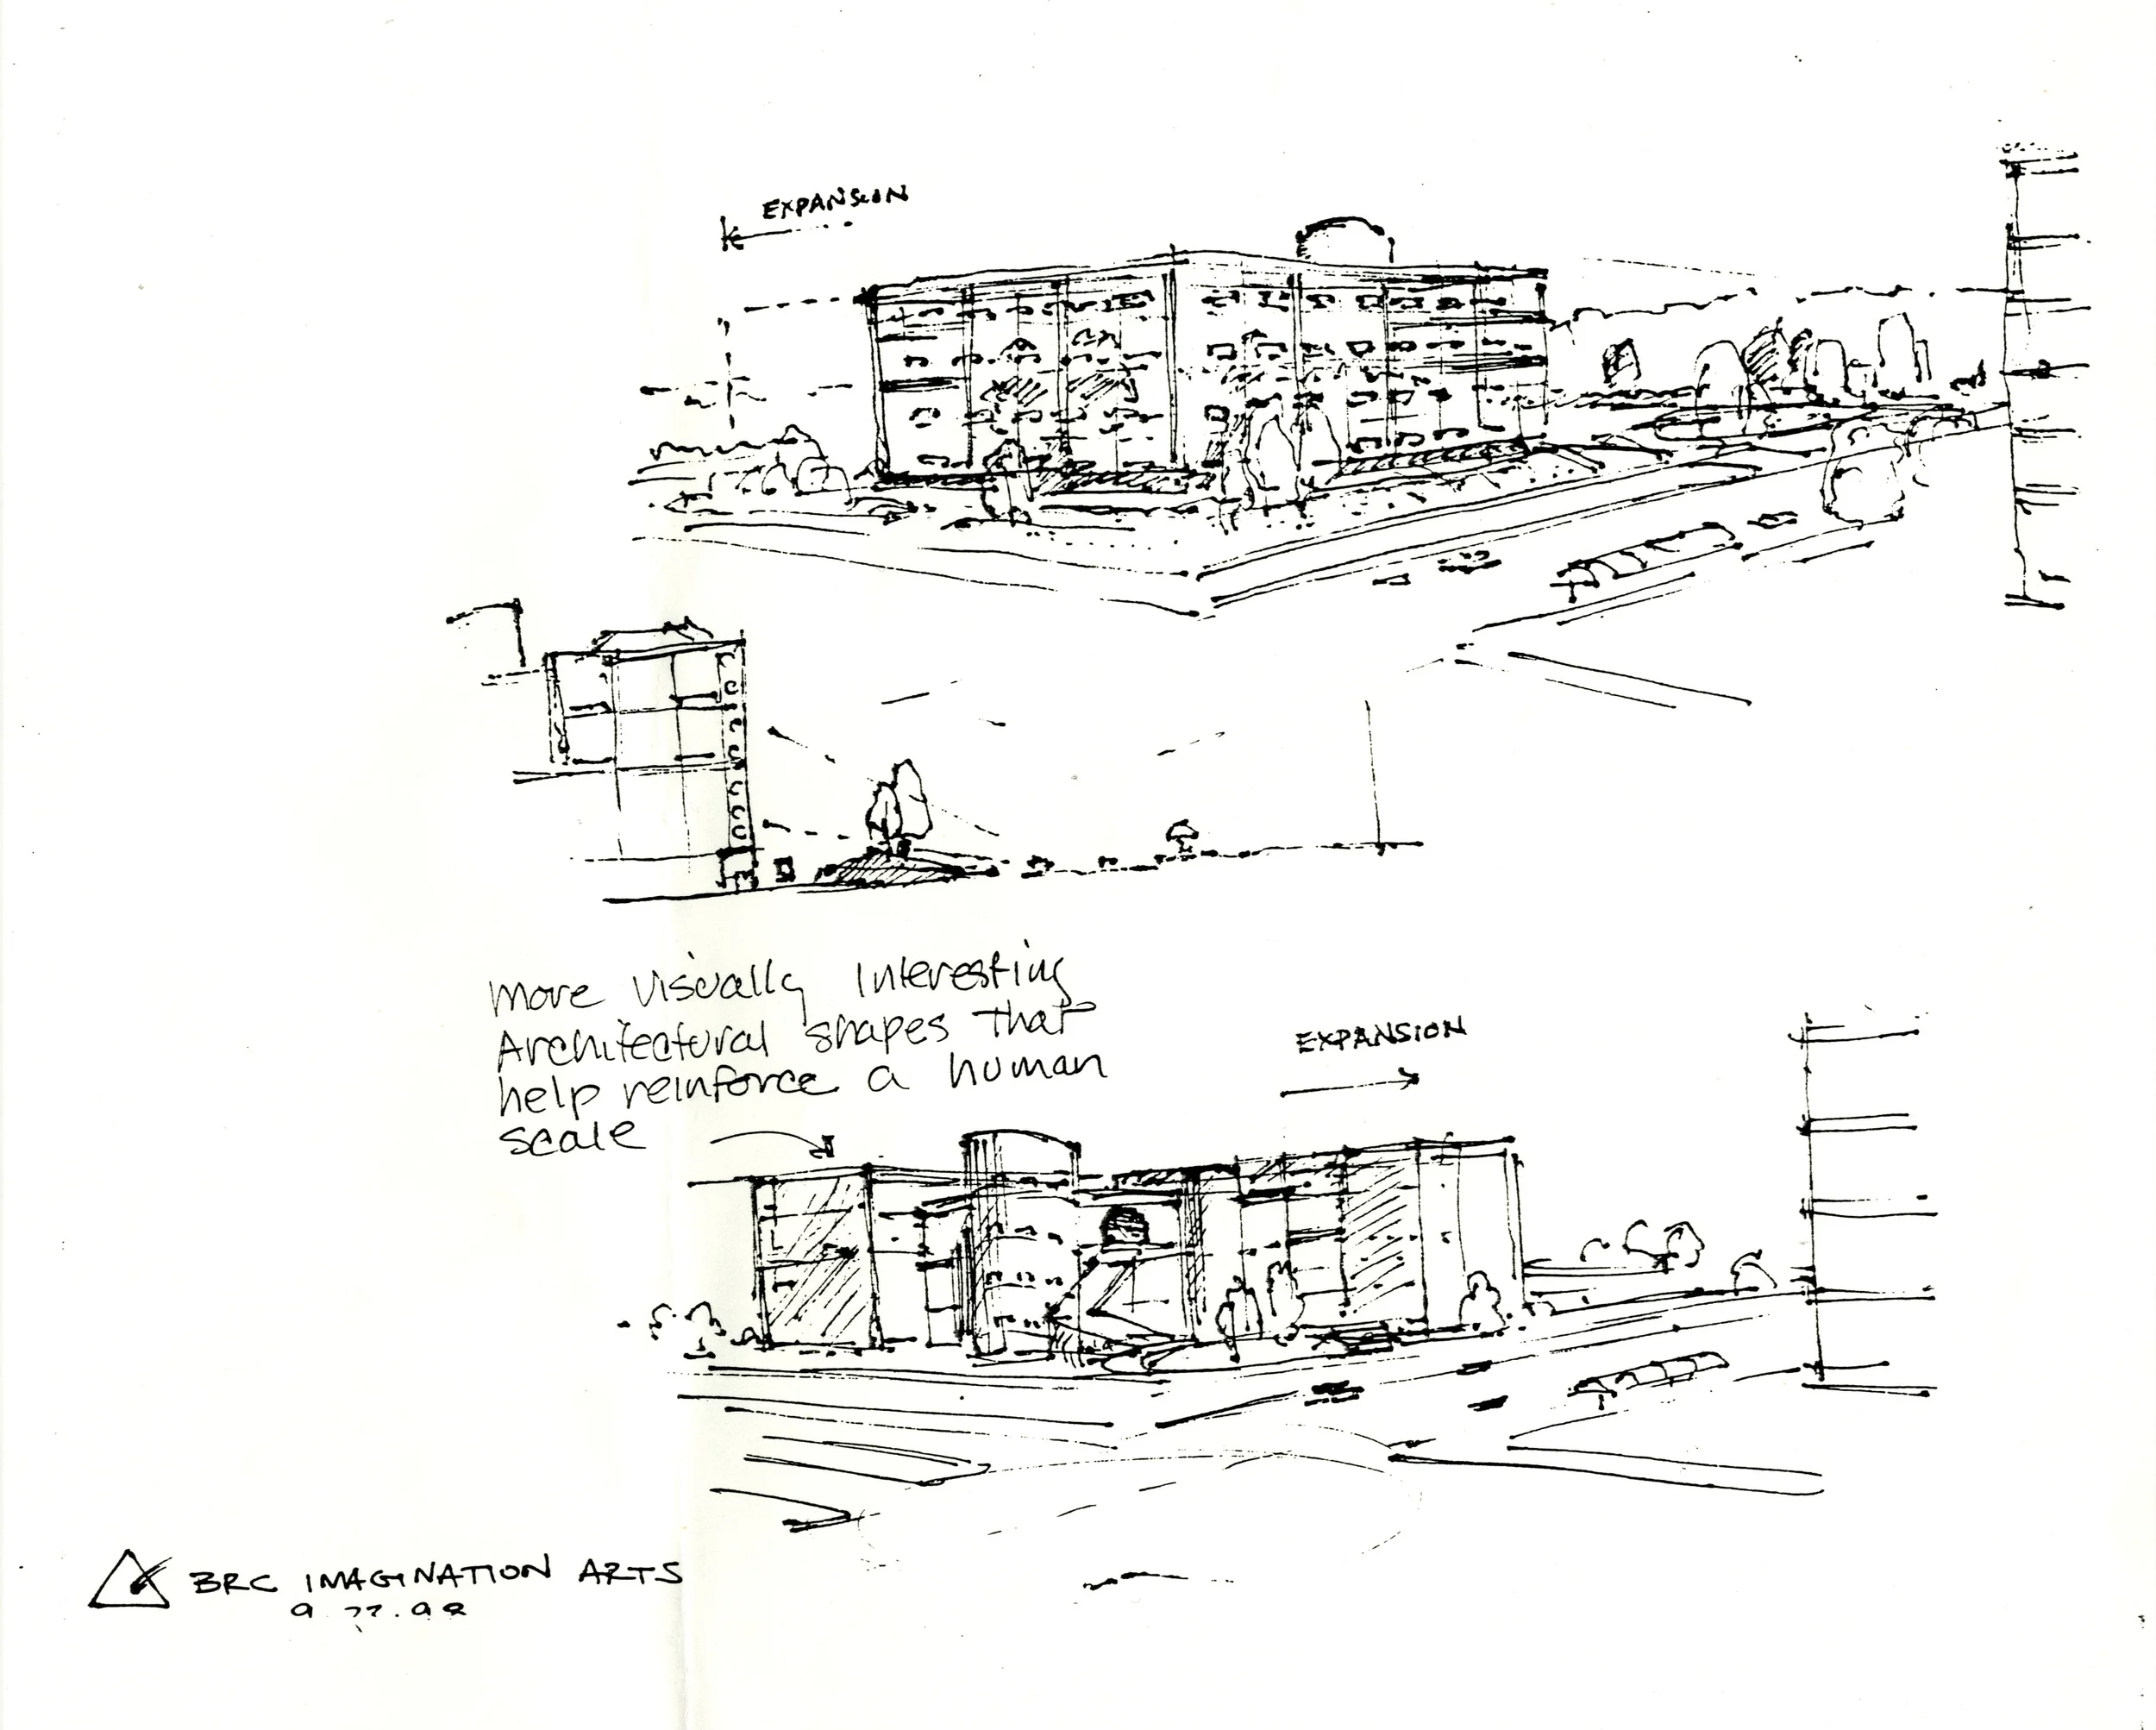 EXPANSION
more visually interesting
Architectural shapes that
help reinforce a human
scale
EXPANSION
BRC IMAGINATION ARTS
9.22.98